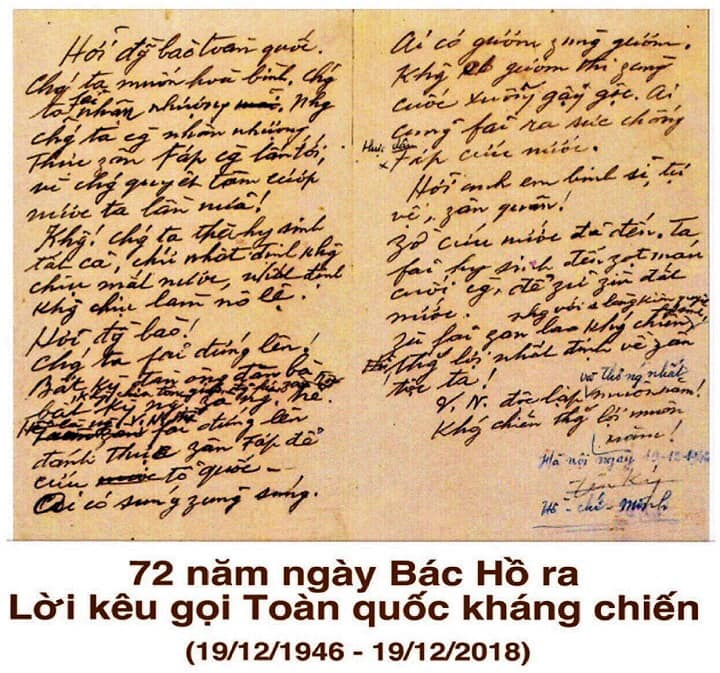 Hỡi đ͠g bào toàn quốc.
Chg ta muốn hoà bình, chg
ta fải nhân nhượng. Nhg
chg ta cg nhân nhượng
thực zân Fáp cg lấn tới,
vì chg quyết tâm cướp
nước ta lần nữa!
Khg! chg ta thà hy sinh
tất cả, chứ nhất định khg
chịu mất nước, nhất định
khg chịu làm nô lệ.
Hỡi đg bào!
Chg ta fải đứng lên!
Bất kỳ đàn ông đàn bà
bất kỳ
fải đứng lên
đánh thực zân Fáp để
cứu tổ quốc –
Ai có súng zùng súng.
Ai có gươm zùng gươm.
Khg có gươm thì zùng
cuốc xuổng gậy gộc. Ai
cũng fải ra sức chống
thực dân
Fáp cứu nước.
Hỡi anh em binh sĩ, tự
vệ, zân quân!
Zờ cứu nước đã đến. Ta
fải hy sinh đến zọt máu
cuối cg, để zữ zìn đất
nước.
Zù fải zan lao khg chiến,
nhg với 1 lòng kiên quyết
hy sinh,
thg lợi nhất định về zân
tộc ta!
V.N. độc lập và thống nhất muôn năm!
Khg chiến thg lợi muôn
năm!
Hà nội ngày 19-12-1946
Hồ-chí-Minh
72 năm ngày Bác Hồ ra
Lời kêu gọi Toàn quốc kháng chiến
(19/12/1946 - 19/12/2018)